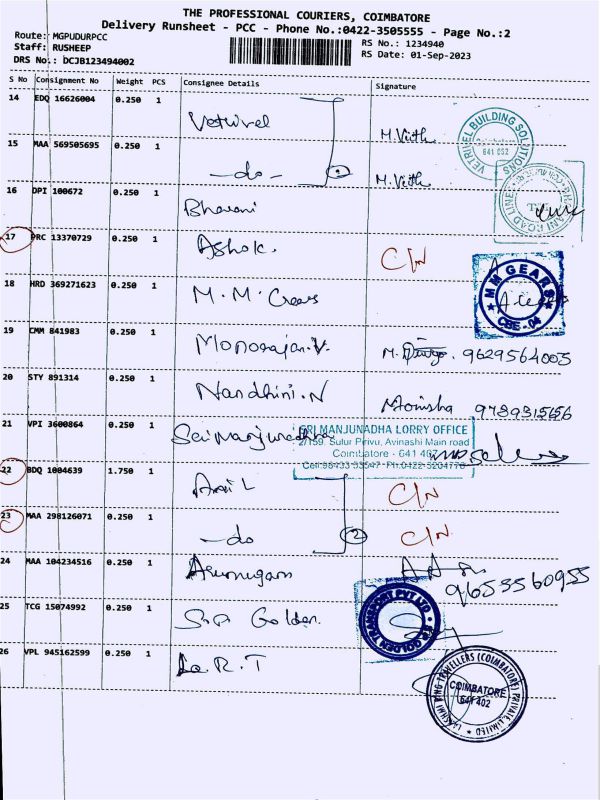 THE PROFESSIONAL COURIERS, COIMBATORE
Delivery Runsheet - PCC - Phone No.:0422-3505555 - Page No.:2
Route: MGPUDURPCC
RS No.: 1234940
Staff: RUSHEEP
RS Date: 01-Sep-2023
DRS No.: DCJB123494002
S No Consignment No Weight PCS Consignee Details Signature
14 EDQ 16626004 0.250 1 Vetrivel M. Vith
VETRIVEL BUILDING SOLUTIONS
641 062
15 MAA 569505695 0.250 1 -do- 2 M. Vith
16 DPI 100672 0.250 1 Bhavani
ROAD LINE
17 PRC 13370729 0.250 1 Ashok. C/N
18 HRD 369271623 0.250 1 M.M. Gears
MM GEARS
CBE -04
19 CMM 841983 0.250 1 Manorajan.V. M. 9629564003
20 STY 891314 0.250 1 Nandhini.N Monisha 9789315656
21 VPI 3600864 0.250 1 Sri Manjunadha
SRI MANJUNADHA LORRY OFFICE
2/159, Sulur Pirivu, Avinashi Main road
Coimbatore - 641 402
Cell:98433 33547 Ph:0422-5204776
22 BDQ 1004639 1.750 1 Anil C/N
23 MAA 298126071 0.250 1 -do 2 C/N.
24 MAA 104234516 0.250 1 Arumugam 9653560955
25 TCG 15074992 0.250 1 S.R Golden.
S.R. GOLDEN TRANSPORT PVT LTD
26 VPL 945162599 0.250 1 La.R.T
LAKSHMI RING TRAVELLERS (COIMBATORE) PRIVATE LIMITED
COIMBATORE
641 402